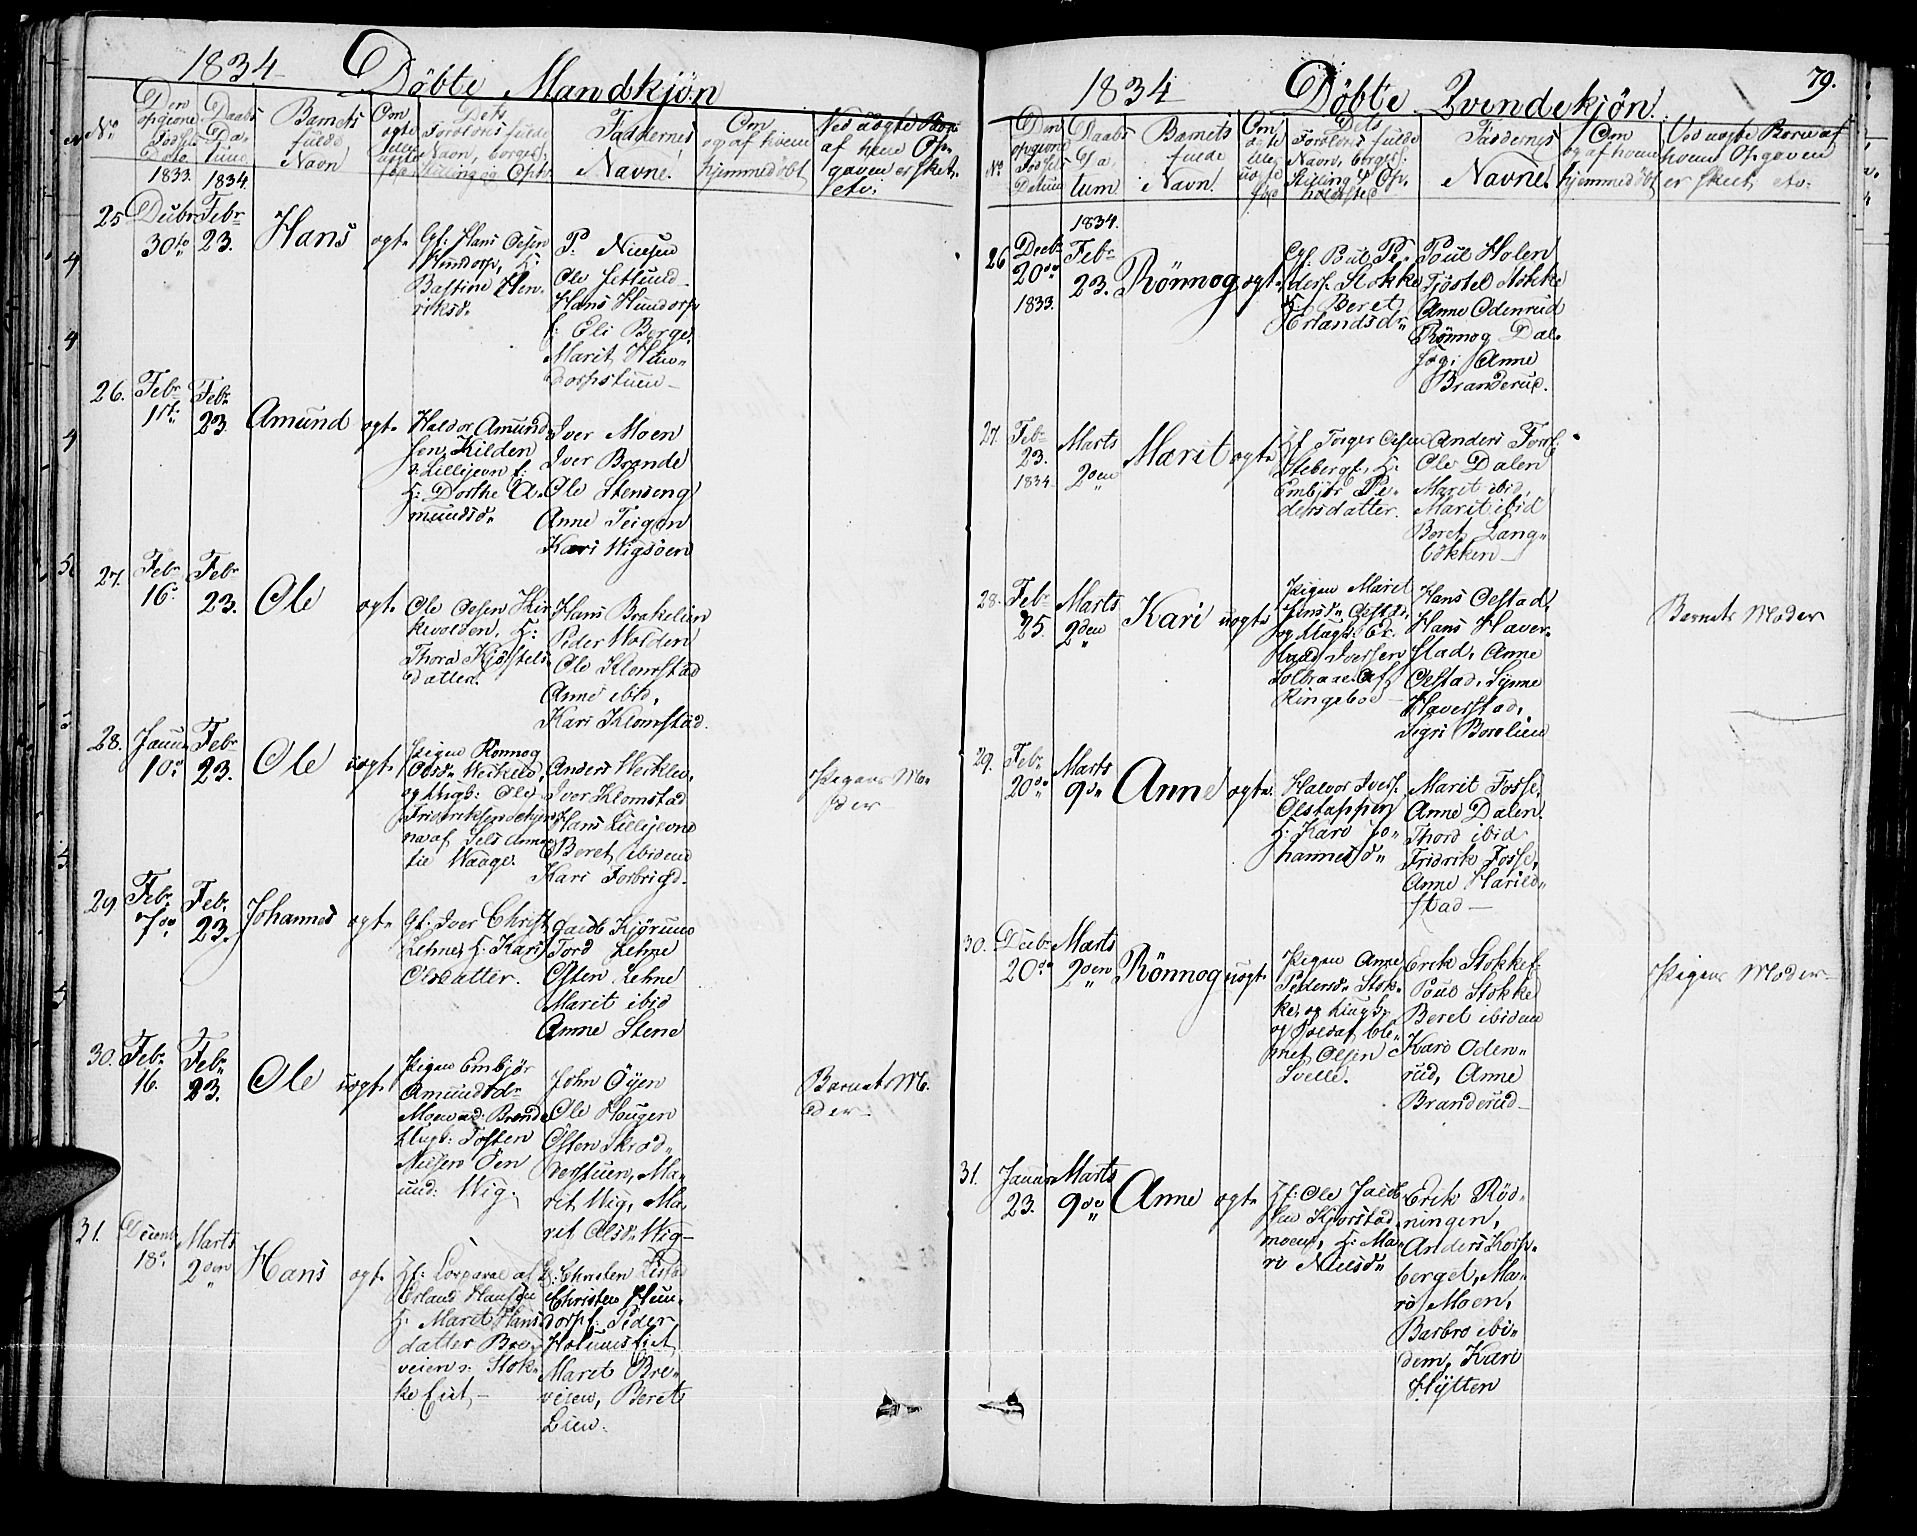 1834 Döbte Mandkjön
No
Den opgivne Födsels Dato
Daabs Datum
Barnets fulde Navn
Om ægte eller uægte
Dets Forældres fulde Navn, borgerl: Stilling og
Faddernes Navne.
Om og af hvem hjemmedöbt
Ved uægte Börn af hvem Opgaven er skeet. etc.
1833. 1834.
25 Debr 30te Febr 23. Hans ægte
Gf: Hans Olsen
Hundorp, H:
Bastine Hen-
riksd.
P. Nielsen
Ole Listuend
Hans Hundorp
Eli Berge,
Marit Hun-
dorpstuen
26. Febr 1ste Febr 23 Amund ægte
Haldor Amund
sen Kilden
H: Dorthe A-
mundsd.
Iver Moen
Iver Brande
Ole Stenseng
Anne Teigen
Kari Wigsöen
27. Febr 16. Febr 23. Ole ægte
Ole Olsen Kir
kevolden, H:
Thora Kjöstels
datter.
Hans Brækelien
Peder Volden
Ole Klomstad
Anne ibid,
Kari Klomstad.
28. Januar 10. Febr 23. Ole uægte
Pigen Rönnog
Olsd. Weikle,
og Ungk: Ole
Fridriksen
af Sels
Waage.
Anders Weikle,
Iver Klomstad
Hans Lillejevne
Beret ibidem
Kari Forbrigd.
Pigens Mo-
der
29 Febr 7de Febr 23. Johannes ægte
Gf. Iver Christ
Lehne, H. Kari
Olsdatter.
Kjörum
Tord Lehne
Östen Lehne
Marit ibid
Anne Stene
30. Febr 16. Febr 23. Ole uægte
Pigen Embjör
Amundsdr
Ungk: Tosten
Nielsen Öen
und: Wig.
John Öyen
Ole Hougen
Östen Skræd-
derstuen, Ma-
rit Wig, Ma-
rit Olsd. Wig
Barnets M.
oder
31. Decemb 18. Marts 2den Hans ægte
Gf: Corporal af
Erland Hansen
H. Marit Hans
datter Bre-
veien
Christen
Christen Hun-
dorp: Peder
Holmseiet
Marit Bre-
veien, Beret
Lien.
1834 Döbte Qvindekjön. 79.
No
Den opgivne Födsels Datum
Daabs Datum
Barnets fulde Navn.
Om ægte eller uægte
Dets Forældres fulde Navn, borgerl: Stilling & Opholdssted
Faddernes Navne.
Om og af hvem hjemmedöbt
Ved uægte Börn af hvem Opgaven er skeet etc.
1834.
26 Decbr 20de 1833. Febr 23. Rönnog ægte
Gf. Poul Pe-
ders. Stokke
H: Beret
Erlandsdr
Poul Holen
Tjöstel Stokke
Anne Odenrud
Rönnog Dal-
seg; Anne
Branderud.
27. Febr 23. 1834 Marts 2den Marit ægte
Gf. Torger Olsen
Stebergs, H.
Embjör Pe-
dersdatter.
Anders Fosse
Ole Dalen
Marit ibid,
Marit ibid
Beret Lang-
bökken
28. Febr 25. Marts 2den Kari uægte
Pigen Marit
Jensd. Olstad,
og Ungk:
Iversen
af
Ringeboe
Hans Olstad,
Hans Haver-
stad, Anne
Olstad, Synne
Haverstad,
Sigri Borolien
Barnets Moder
29. Febr 20de Marts 9de Anne ægte
Halvor Ivers.
Olstappen
H: Kari Jo-
hannesd.
Marit Fosse,
Anne Dalen.
Thord ibid
Fridrik Fosse,
Anne Harild-
stad
30. Debr 20de Marts 2den Rönnog uægt
Pigen Anne
Pedersd. Stok-
ke, og Ungk.
og Soldat Cle-
met Olsen
Svelle.
Erik Stokke
Poul Stokke
Beret ibidem
Kari Oden-
rud, Anne
Branderud
Pigens Moder
31. Januar 23. Marts 9de Anne ægte
Gf: Ole
Kjorstad
moen, H: Ma-
ri Nielsd.
Erik Röd-
ningen,
Anders Korp-
berget, Ma-
ri Moen,
Barbro ibi-
dem, Kari
Hytten